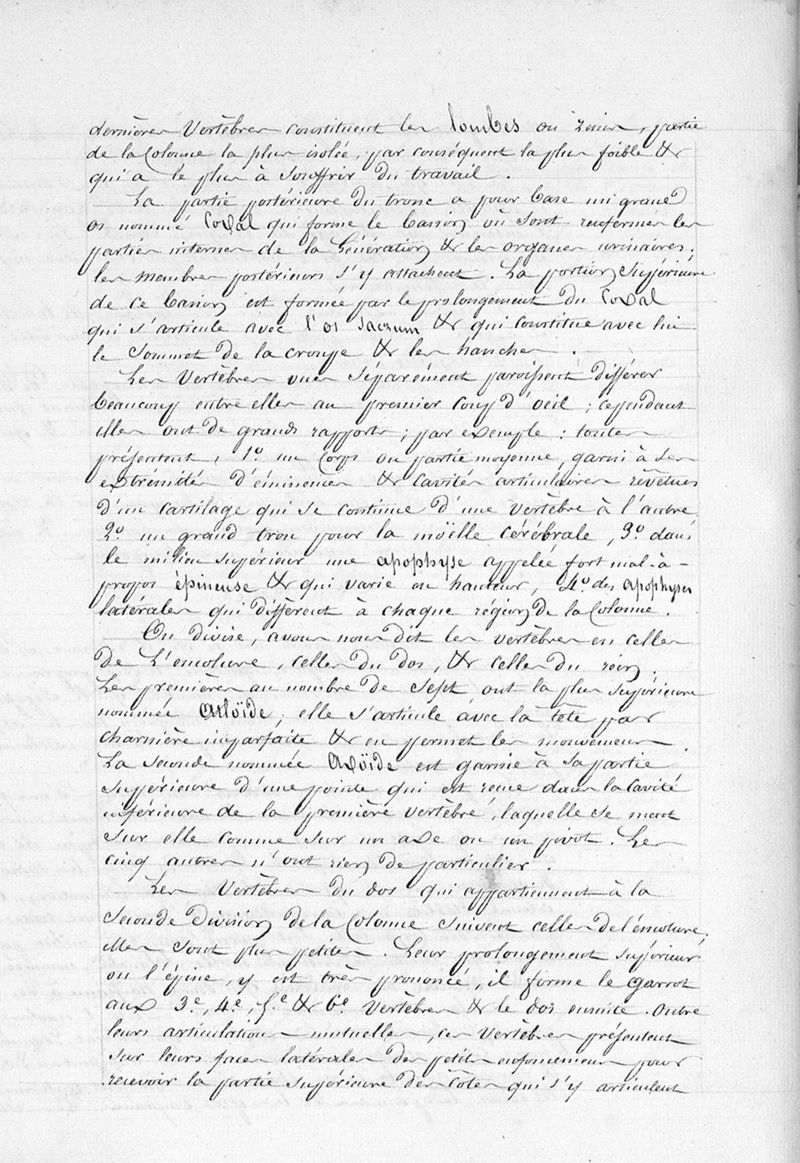 dernières Vertèbres constituent les lombes ou reins, partie
de la Colonne la plus isolée, par conséquent la plus foible &
qui a le plus à Souffrir du travail.
La partie postérieure du tronc a pour base un grand
os nommé Coxal qui forme le bassin où sont renfermés les
parties internes de la Génération & les organes urinaires.
les membres postérieurs s'y attachent. La portion Supérieure
de ce bassin est formée par le prolongement du Coxal
qui s'articule avec l'os sacrum & qui constitue avec lui
le Sommet de la croupe & les hanches.
Les Vertèbres vues Séparément paroissent différer
beaucoup entre elles au premier coup d'oeil ; cependant
elles ont de grands rapports ; par exemple : toutes
présentent, 1.º un Corps ou partie moyenne, garni à ses
extrémités d'éminences & cavités articulaires revêtues
d'un cartilage qui se continue d'une vertèbre à l'autre
2.º un grand trou pour la moëlle cérébrale, 3.º dans
le milieu supérieur une apophyse appelée fort mal-à-
propos épineuse & qui varie en hauteur, 4.º des apophyses
latérales qui diffèrent à chaque région de la Colonne.
On divise, avons nous dit les vertèbres en celles
de L'encolure, celles du dos, & celles du rein.
Les premières au nombre de Sept ont la plus Supérieure
nommée atloïde ; elle s'articule avec la tête par
charnière imparfaite & en permet les mouvemens.
La Seconde nommée axoïde est garnie à Sa partie
Supérieure d'une pointe qui est reçue dans la Cavité
inférieure de la première vertèbre, laquelle Se meut
Sur elle comme Sur un axe ou un pivot. Les
cinq autres n'ont rien de particulier.
Les Vertèbres du dos qui appartiennent à la
Seconde Division de la Colonne Suivent celles de l'encolure,
elles Sont plus petites. Leur prolongement Supérieur
ou l'épine, y est très prononcé, il forme le garrot
aux 3.e, 4.e, 5.e & 6.e Vertèbres & le dos ensuite. Outre
leurs articulations mutuelles, ces Vertèbres présentent
Sur leurs faces latérales des petits enfoncemens pour
recevoir la partie Supérieure des Côtes qui s'y articulent